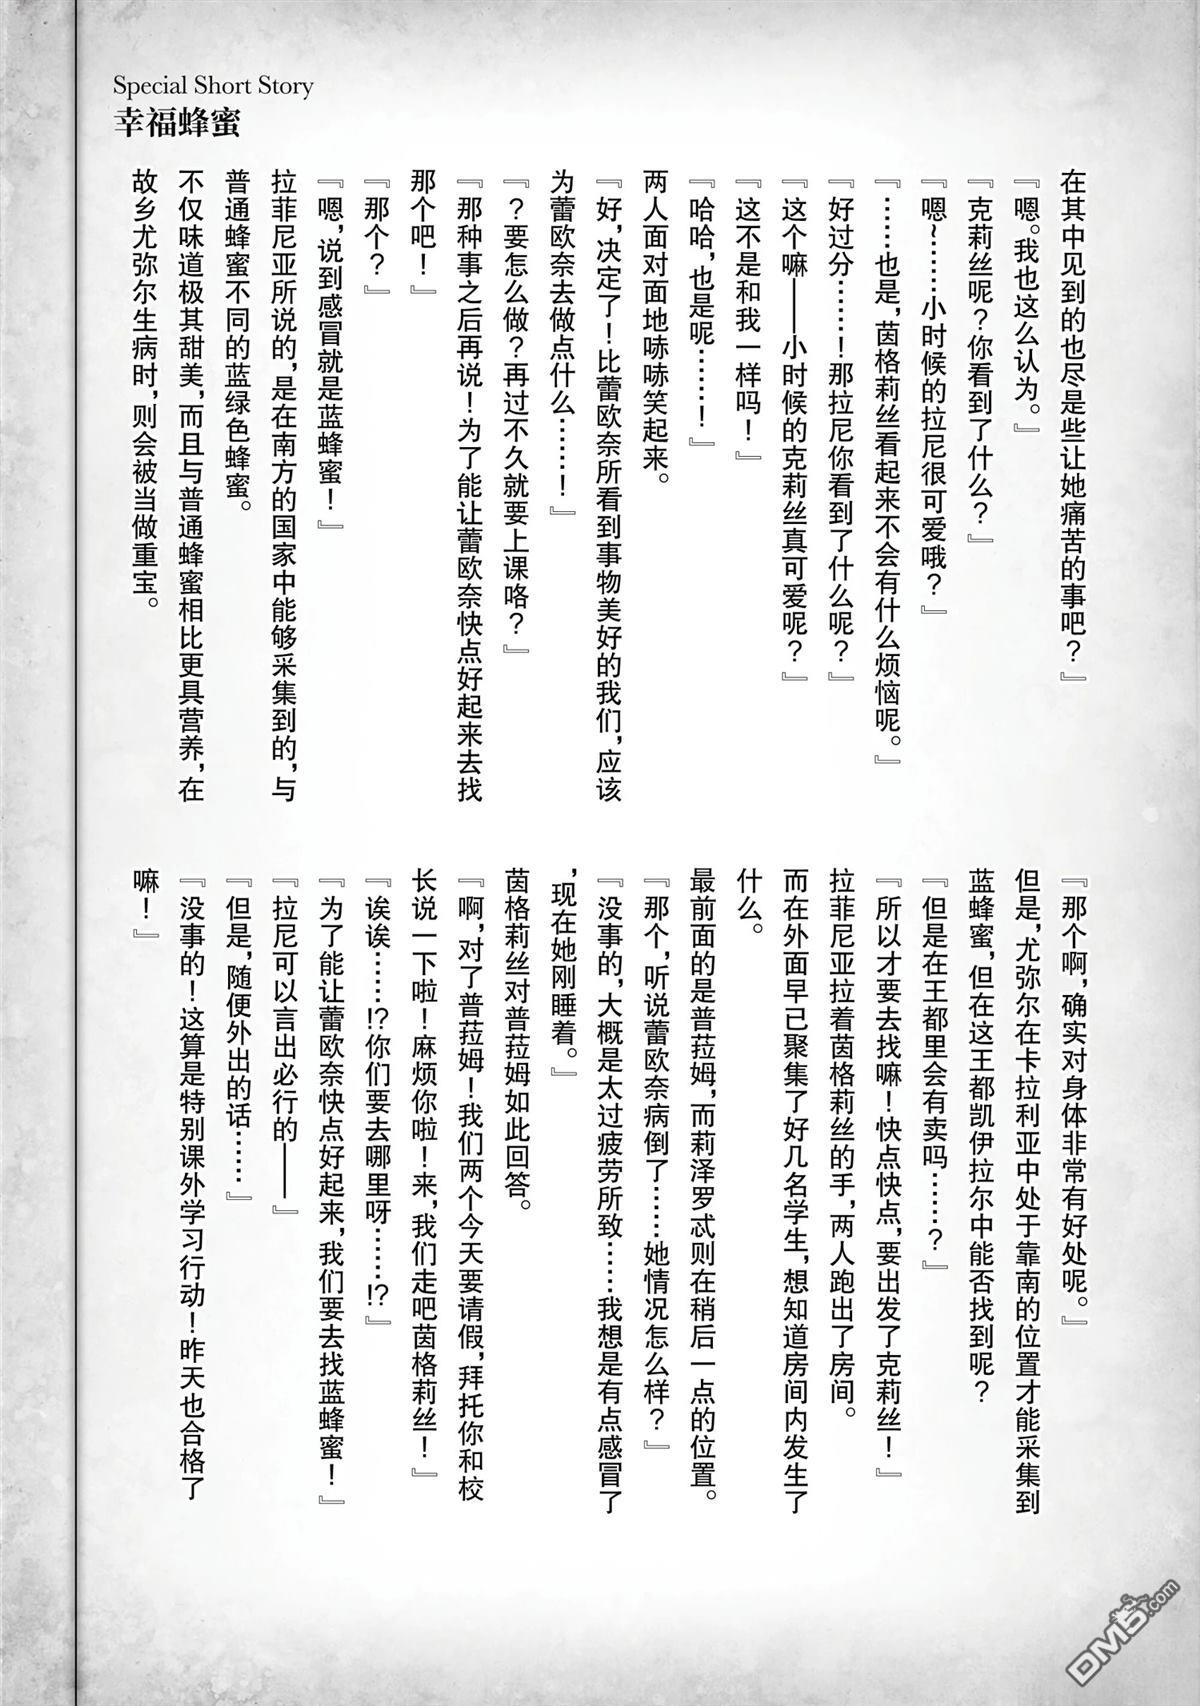 Special Short Story
幸福蜂蜜
在其中见到的也尽是些让她痛苦的事吧？』
『嗯。我也这么认为。』
『克莉丝呢？你看到了什么？』
『嗯~………小时候的拉尼很可爱哦？』
『……也是，茵格莉丝看起来不会有什么烦恼呢。』
『好过分……！那拉尼你看到了什么呢？』
『这个嘛——小时候的克莉丝真可爱呢？』
『这不是和我一样吗！』
『哈哈，也是呢……！』
两人面对面地哧哧笑起来。
『好，决定了！比蕾欧奈所看到事物美好的我们，应该
为蕾欧奈去做点什么……！』
『？要怎么做？再过不久就要上课咯？』
『那种事之后再说！为了能让蕾欧奈快点好起来去找
那个吧！』
『那个？』
『嗯，说到感冒就是蓝蜂蜜！』
拉菲尼亚所说的，是在南方的国家中能够采集到的，与
普通蜂蜜不同的蓝绿色蜂蜜。
不仅味道极其甜美，而且与普通蜂蜜相比更具营养，在
故乡尤弥尔生病时，则会被当做重宝。
『那个啊，确实对身体非常有好处呢。』
但是，尤弥尔在卡拉利亚中处于靠南的位置才能采集到
蓝蜂蜜，但在这王都凯伊拉尔中能否找到呢？
『但是在王都里会有卖吗……？』
『所以才要去找嘛！快点快点，要出发了克莉丝！』
拉菲尼亚拉着茵格莉丝的手，两人跑出了房间。
而在外面早已聚集了好几名学生，想知道房间内发生了
什么。
最前面的是普菈姆，而莉泽罗忒则在稍后一点的位置。
『那个，听说蕾欧奈病倒了……她情况怎么样？』
『没事的，大概是太过疲劳所致……我想是有点感冒了
，现在她刚睡着。』
茵格莉丝对普菈姆如此回答。
『啊，对了普菈姆！我们两个今天要请假，拜托你和校
长说一下啦！麻烦你啦！来，我们走吧茵格莉丝！』
『诶诶……!?你们要去哪里呀……!?』
『为了能让蕾欧奈快点好起来，我们要去找蓝蜂蜜！』
『拉尼可以言出必行的——』
『但是，随便外出的话……』
『没事的！这算是特别课外学习行动！昨天也合格了
嘛！』
DM5.com